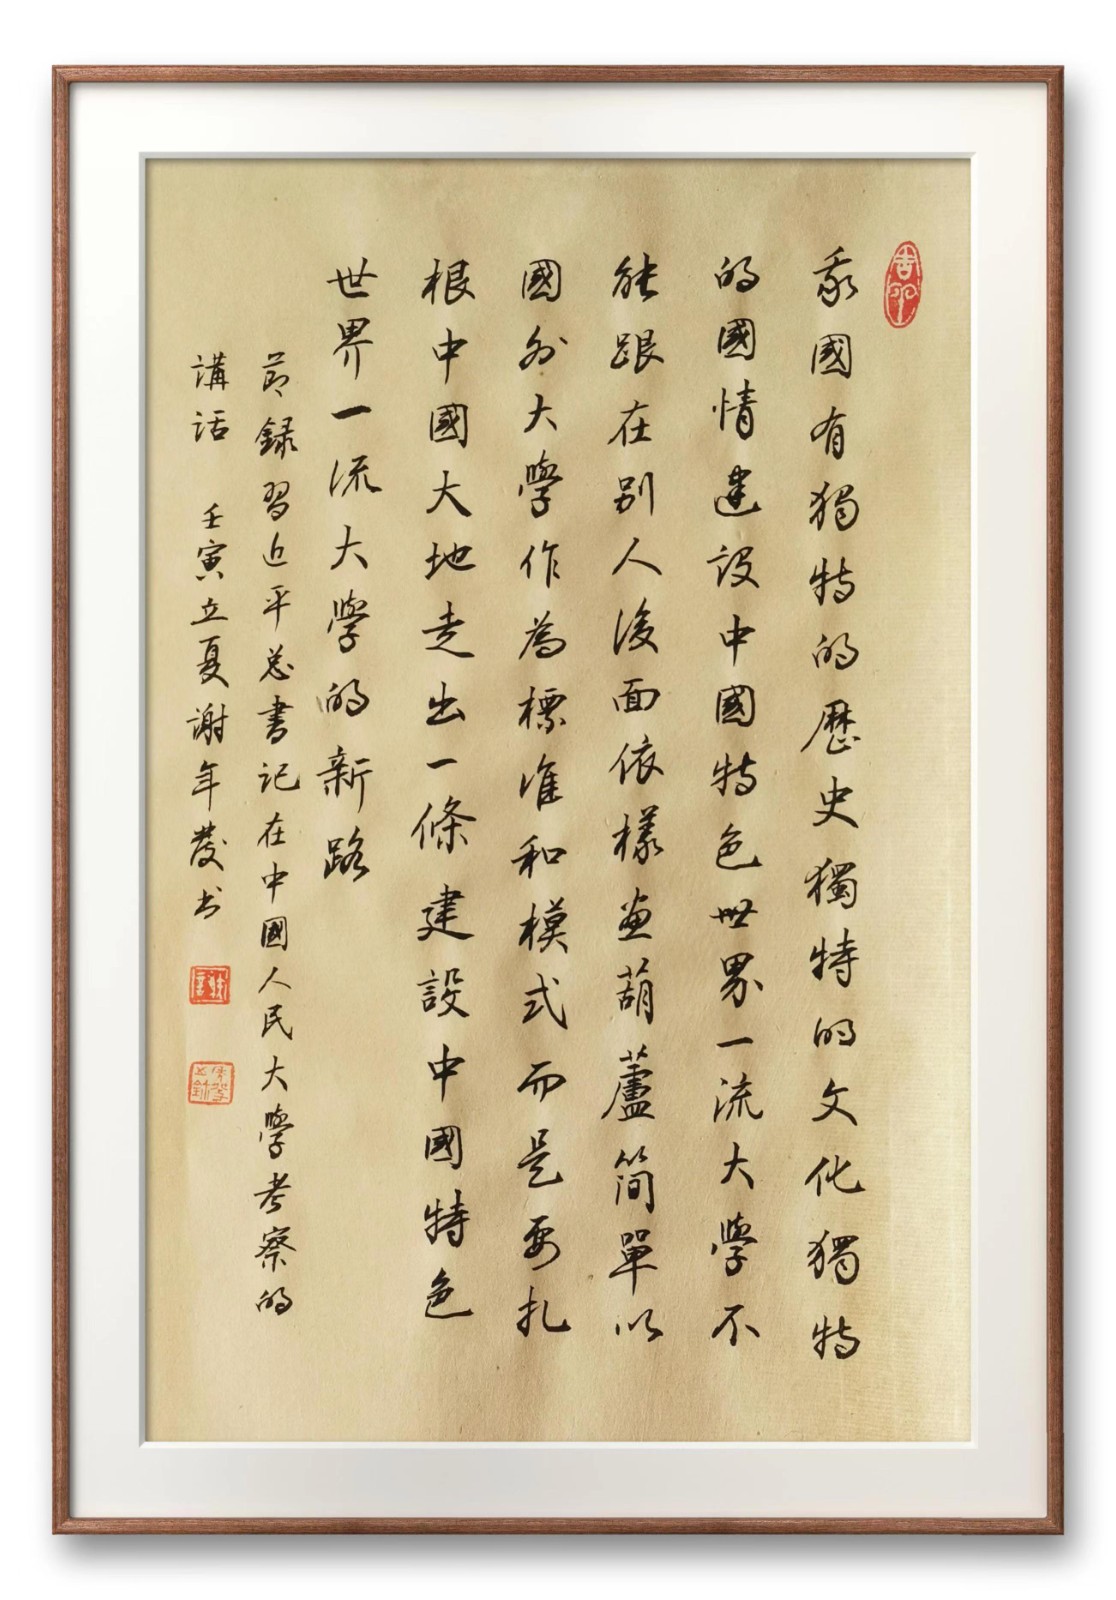 我國有獨特的歷史獨特的文化獨特
的國情建設中國特色世界一流大學不
能跟在别人後面依樣畫葫蘆简單以
國外大學作為標准和模式而是要扎
根中國大地走出一條建設中國特色
世界一流大學的新路
節録習近平总書记在中國人民大學考察的
講话 壬寅立夏謝年發书